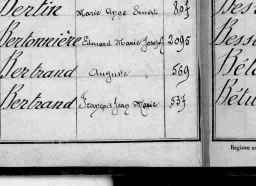 Bertin Marie Ange Ernest 807
Bertonnière Edmond Marie Joseph 2095
Bertrand Auguste 569
Bertrand François Jean Marie 537
Bess
Béla
Bétu